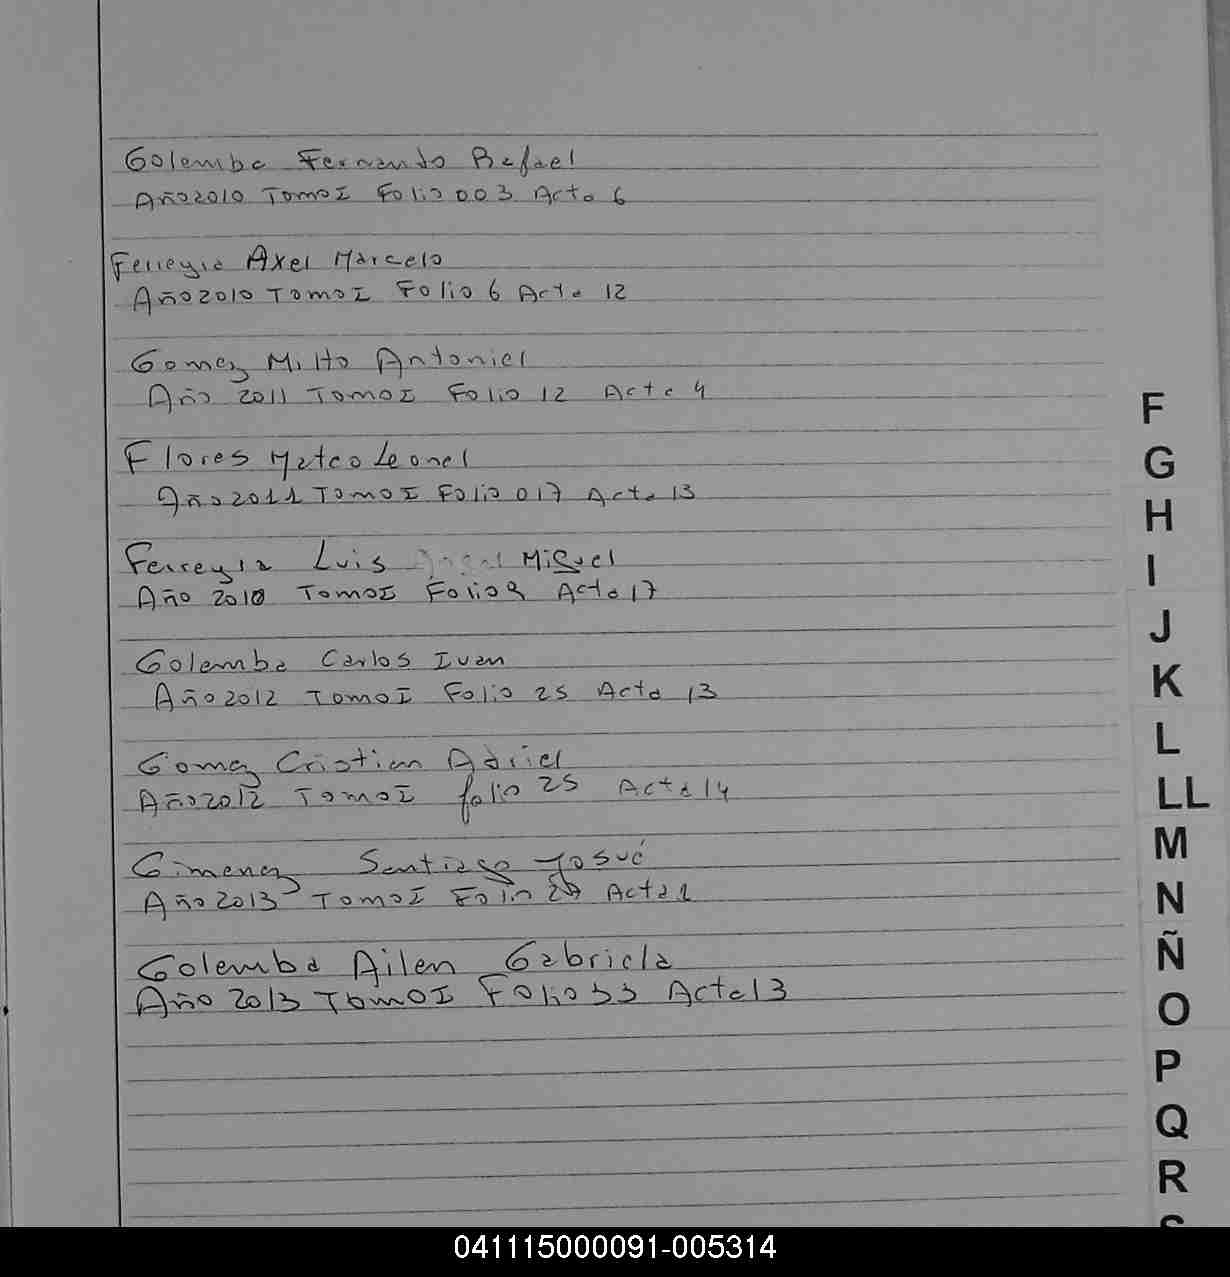 Golemba Fernando Rafael
Año 2010 Tomo I Folio 003 Acta 6
Ferreyra Axel Marcelo
Año 2010 Tomo I Folio 6 Acta 12
Gomez Milto Antoniel
Año 2011 Tomo I Folio 12 Acta 4
Flores Mateo Leonel
Año 2011 Tomo I Folio 017 Acta 13
Ferreyra Luis Miguel
Año 2010 Tomo I Folio 9 Acta 17
Golemba Carlos Ivan
Año 2012 Tomo I Folio 25 Acta 13
Gomez Cristian Adriel
Año 2012 Tomo I folio 25 Acta 14
Gimenez Santiago Josué
Año 2013 Tomo I Folio Acta 1
Golemba Ailen Gabriela
Año 2013 Tomo I Folio 33 Acta 13
F
G
H
I
J
K
L
LL
M
N
Ñ
O
P
Q
R
041115000091-005314